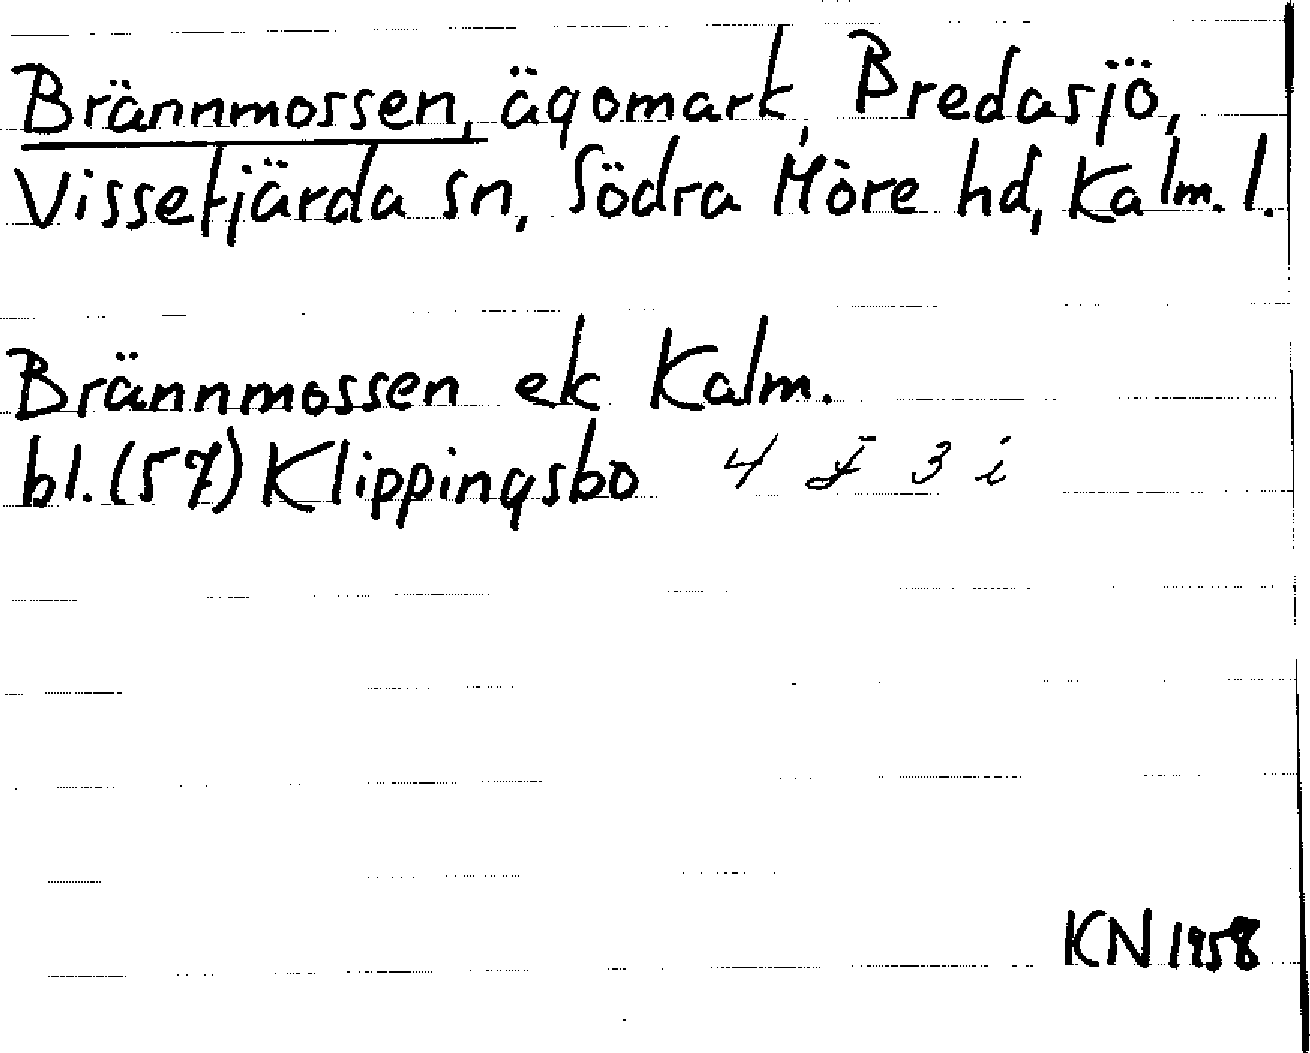 Brännmossen, ägomark, Bredasjö,
Vissefjärda sn, Södra Möre hd, Kalm. l.
Brännmossen ek Kalm.
bl. (57) Klippingsbo 4 F 3 i
KN 1958